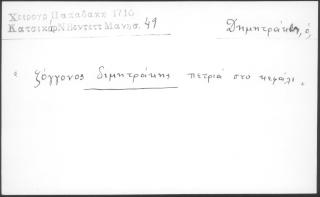 Χειρογρ. Παπαδάκη 1710
Κατσικάρ Ν Βεντετ Μανησ. 49
Δημητράκης, ὁ,
ζόγγονος διμητράκης πετριά στό κεφάλι.